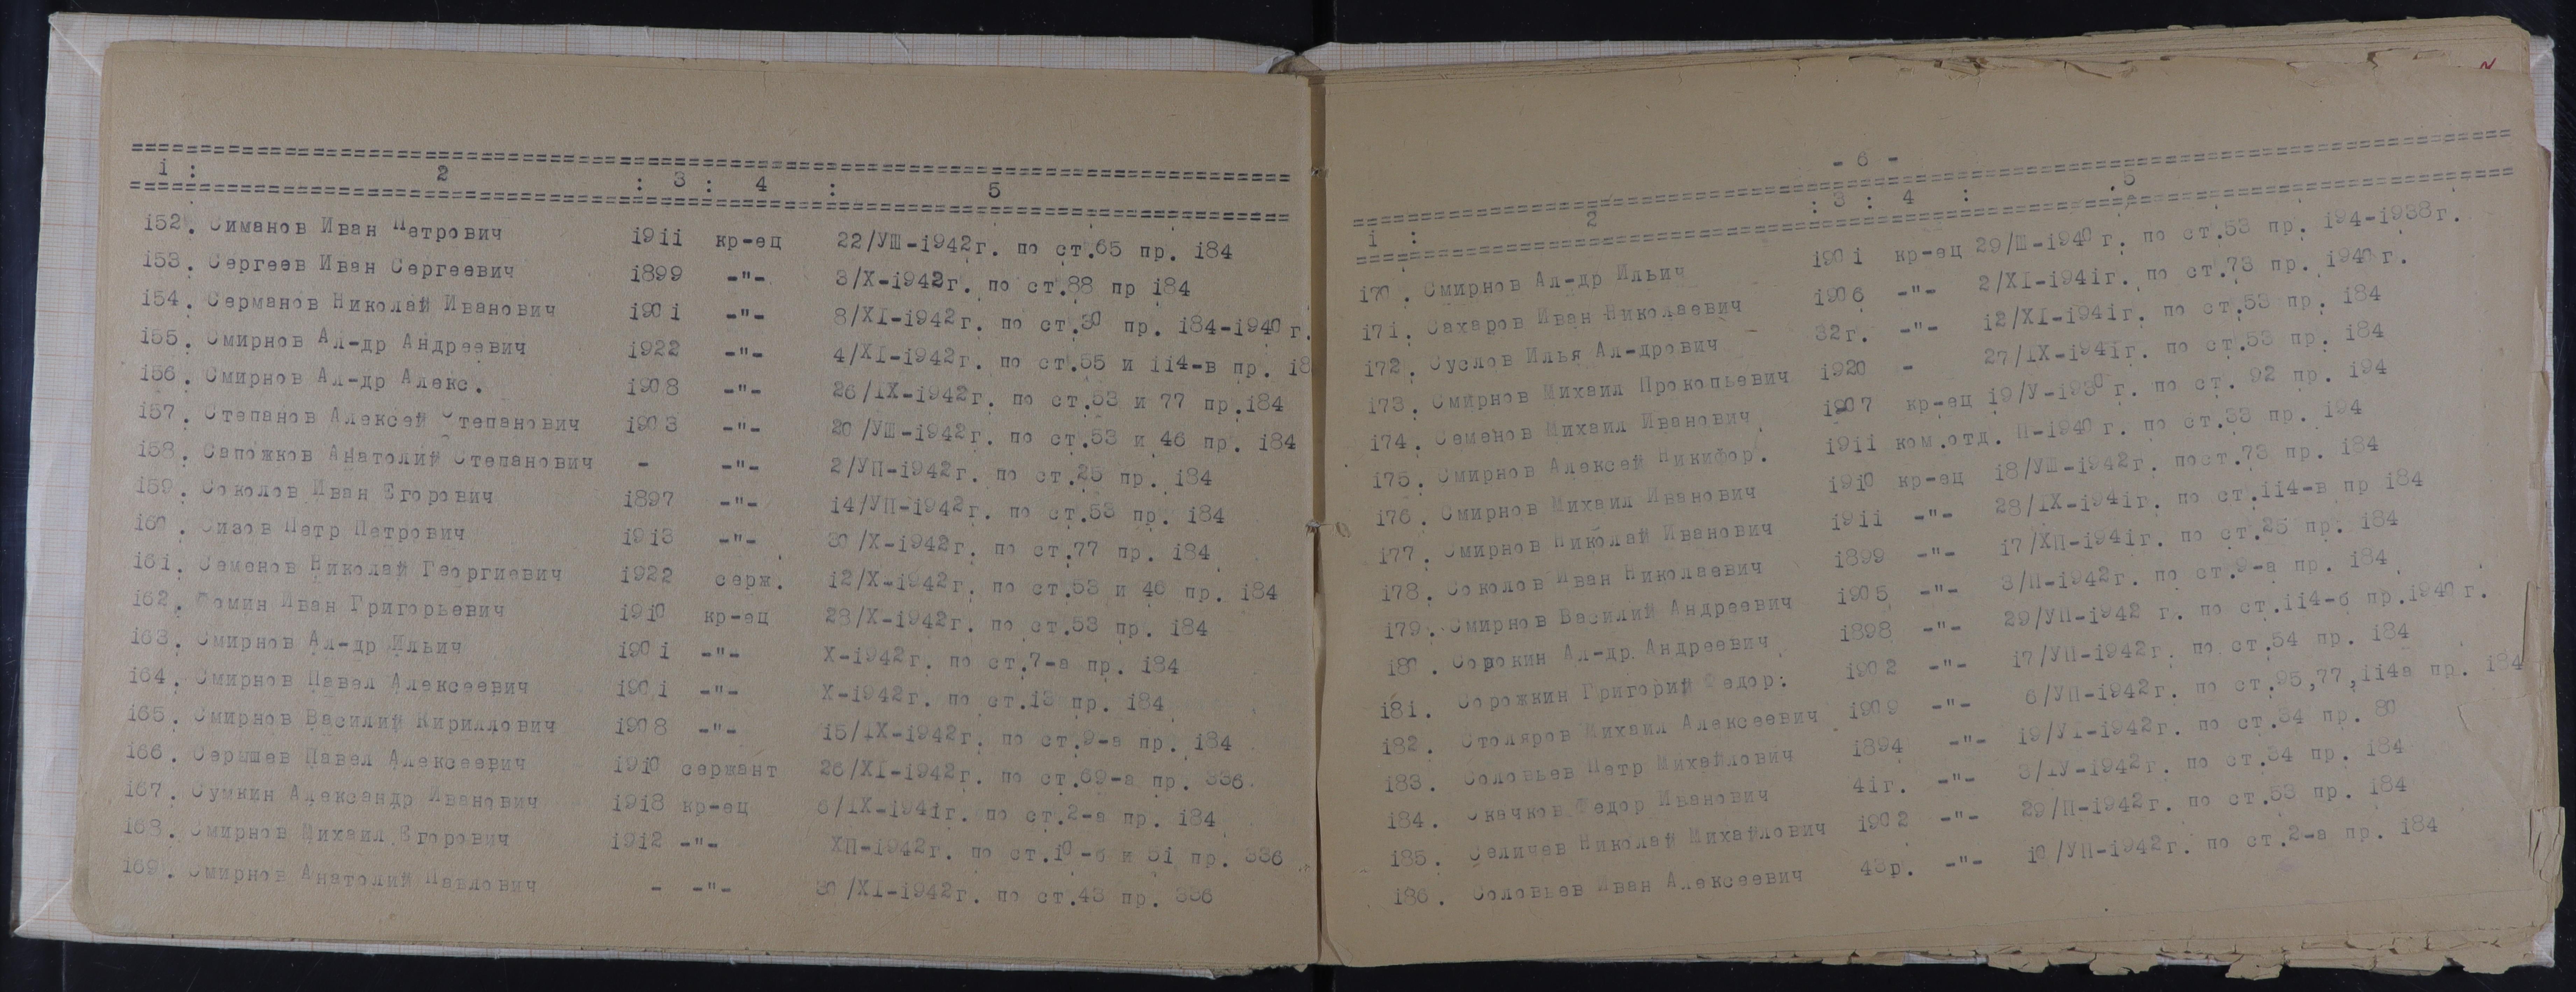 1 : 2 : 3 : 4 : 5
152. Симанов Иван Петрович 1911 кр-ец 22/УШ-1942г. по ст.65 пр. 184
153. Сергеев Иван Сергеевич 1899 -"- 3/Х-1942г. по ст.88 пр 184
154. Серманов Николай Иванович 1901 -"- 8/ХI-1942г. по ст.30 пр. 184-1940г.
155. Смирнов Ал-др Андреевич 1922 -"- 4/ХI-1942г. по ст.55 и 114-в пр. 18
156. Смирнов Ал-др Алекс. 1908 -"- 26/IХ-1942г. по ст.53 и 77 пр.184
157. Степанов Алексей Степанович 1903 -"- 20/УШ-1942г. по ст.53 и 46 пр. 184
158. Сапожков Анатолий Степанович - -"- 2/УП-1942г. по ст.25 пр. 184
159. Соколов Иван Егорович 1897 -"- 14/УП-1942г. по ст.53 пр. 184
160. Сизов Петр Петрович 1913 -"- 30/Х-1942г. по ст.77 пр. 184
161. Семенов Николай Георгиевич 1922 серж. 12/Х-1942г. по ст.53 и 46 пр. 184
162. Фомин Иван Григорьевич 1910 кр-ец 28/Х-1942г. по ст.53 пр. 184
163. Смирнов Ал-др Ильич 1901 -"- Х-1942г. по ст.7-а пр. 184
164. Смирнов Павел Алексеевич 1901 -"- Х-1942г. по ст.13 пр. 184
165. Смирнов Василий Кириллович 1908 -"- 15/IХ-1942г. по ст.9-а пр. 184
166. Серышев Павел Алексеевич 1910 сержант 26/ХI-1942г. по ст.69-а пр. 336.
167. Сумкин Александр Иванович 1918 кр-ец 6/IХ-1941г. по ст.2-а пр. 184
168. Смирнов Михаил Егорович 1912 -"- ХП-1942г. по ст.10-б и 51 пр. 336
169. Смирнов Анатолий Павлович - -"- 30/ХI-1942г. по ст.43 пр. 336
- 6 -
1 : 2 : 3 : 4 : 5
170. Смирнов Ал-др Ильич 1901 кр-ец 29/Ш-1940г. по ст.53 пр. 194-1938г.
171. Сахаров Иван Николаевич 1906 -"- 2/ХI-1941г. по ст.73 пр. 1940г.
172. Суслов Илья Ал-дрович 32г. -"- 12/ХI-1941г. по ст.53 пр. 184
173. Смирнов Михаил Прокопьевич 1920 - 27/IХ-1941г. по ст.53 пр. 184
174. Семенов Михаил Иванович 1907 кр-ец 19/У-1930г. по ст. 92 пр. 194
175. Смирнов Алексей Никифор. 1911 ком.отд. П-1940г. по ст.33 пр. 194
176. Смирнов Михаил Иванович 1910 кр-ец 18/УШ-1942г. пост.73 пр. 184
177. Смирнов Николай Иванович 1911 -"- 28/IХ-1941г. по ст.114-в пр 184
178. Соколов Иван Николаевич 1899 -"- 17/ХП-1941г. по ст.25 пр. 184
179. Смирнов Василий Андреевич 1905 -"- 3/П-1942г. по ст.9-а пр. 184
180. Сорокин Ал-др Андреевич 1898 -"- 29/УП-1942 г. по ст.114-б пр.1940г.
181. Сорожкин Григорий Федор. 1902 -"- 17/УП-1942г. по ст.54 пр. 184
182. Столяров Михаил Алексеевич 1909 -"- 6/УП-1942г. по ст.95,77,114а пр. 184
183. Соловьев Петр Михайлович 1894 -"- 19/УI-1942г. по ст.34 пр. 80
184. Скачков Федор Иванович 41г. -"- 3/IУ-1942г. по ст.34 пр. 184
185. Селичев Николай Михайлович 1902 -"- 29/П-1942г. по ст.53 пр. 184
186. Соловьев Иван Алексеевич 43р. -"- 10/УП-1942г. по ст.2-а пр. 184